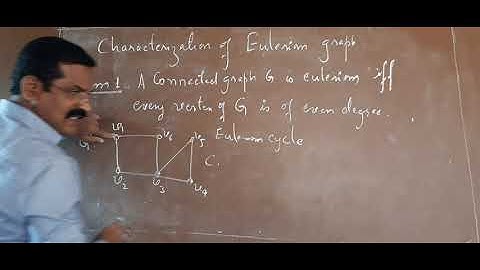 Characterization of Eulerian graph
m 1. A Connected graph G is eulerian iff
every vertex of G is of even degree.
G v1 v6 v5 Eulerian cycle
C.
v2 v3 v4